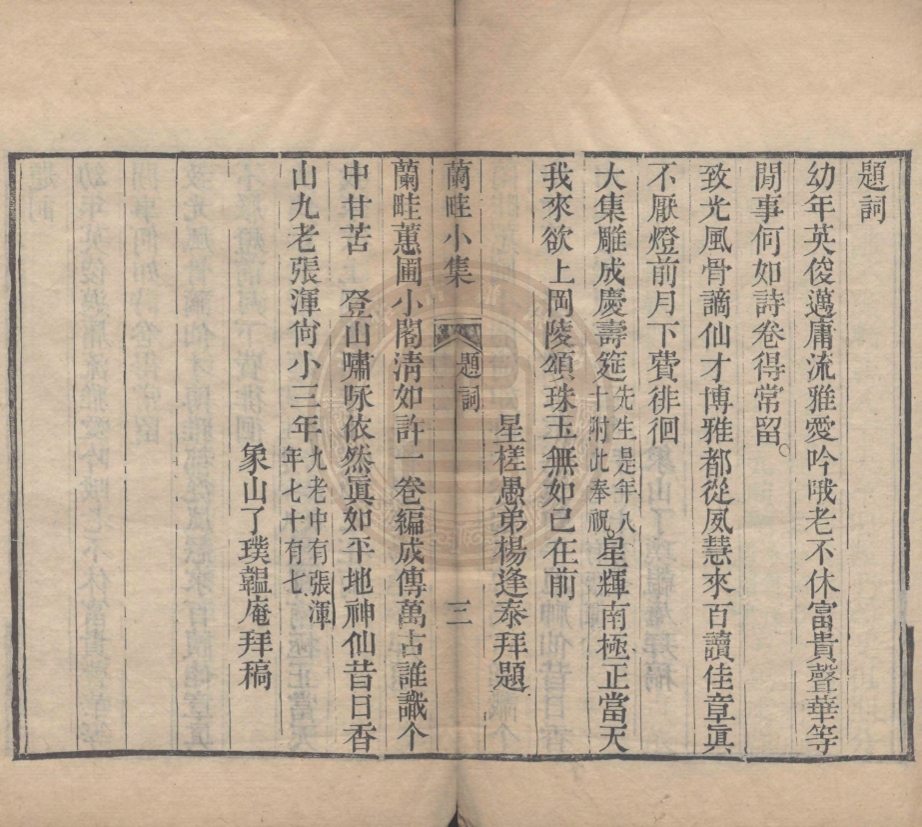 題詞
幼年英俊邁庸流雅愛吟哦老不休富貴聲華等
閒事何如詩卷得常留
致光風骨謫仙才博雅都從夙慧來百讀佳章眞
不厭燈前月下費徘徊
大集雕成慶壽筵先生是年八十附此奉祝。星輝南極正當天
我來欲上岡陵頌珠玉無如已在前
星槎愚弟楊逢泰拜題
蘭畦小集
題詞
三
蘭畦蕙圃小閣淸如許一卷編成傳萬古誰識个
中甘苦　登山嘯咏依然眞如平地神仙昔日香
山九老張渾何小三年九老中有張渾年七十有七
象山了璞韞庵拜稿